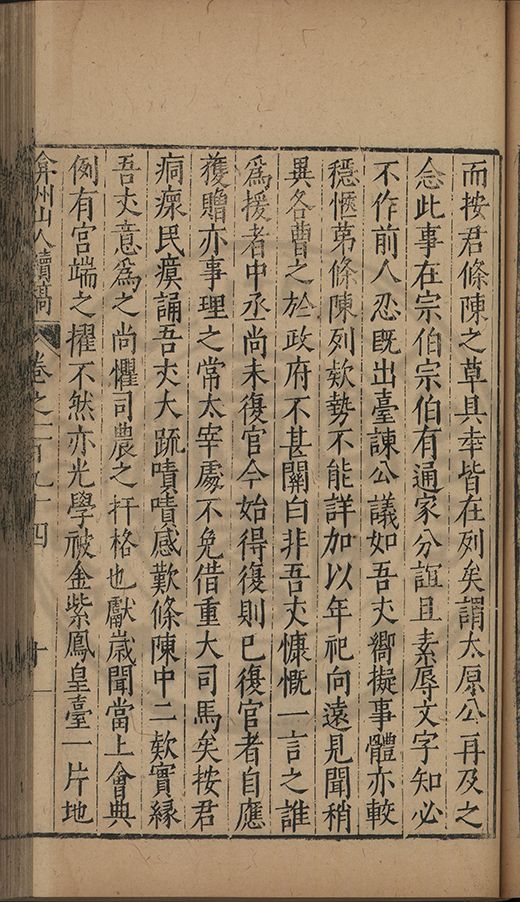 而按君條陳之草具奉皆在列矣謂太原公再及之
念此事在宗伯宗伯有通家分誼且素辱文字知必
不作前人忍既出臺諫公議如吾丈銜擬事體亦較
穩愜第條陳列欵勢不能詳加以年祀向遠見聞稍
異各曹之於政府不甚關白非吾丈慷慨一言之誰
爲援者中丞尚未復官今始得復則已復官者自應
獲贈亦事理之常太宰處不免借重大司馬矣按君
痌瘝民瘼誦吾丈大疏嘖嘖感歎條陳中二欵實緣
吾丈意爲之尚懼司農之扞格也獻歳聞當上會典
例有宫端之擢不然亦光學被金紫鳳皇臺一片地
弇州山人續稿 卷之一百九十四 十